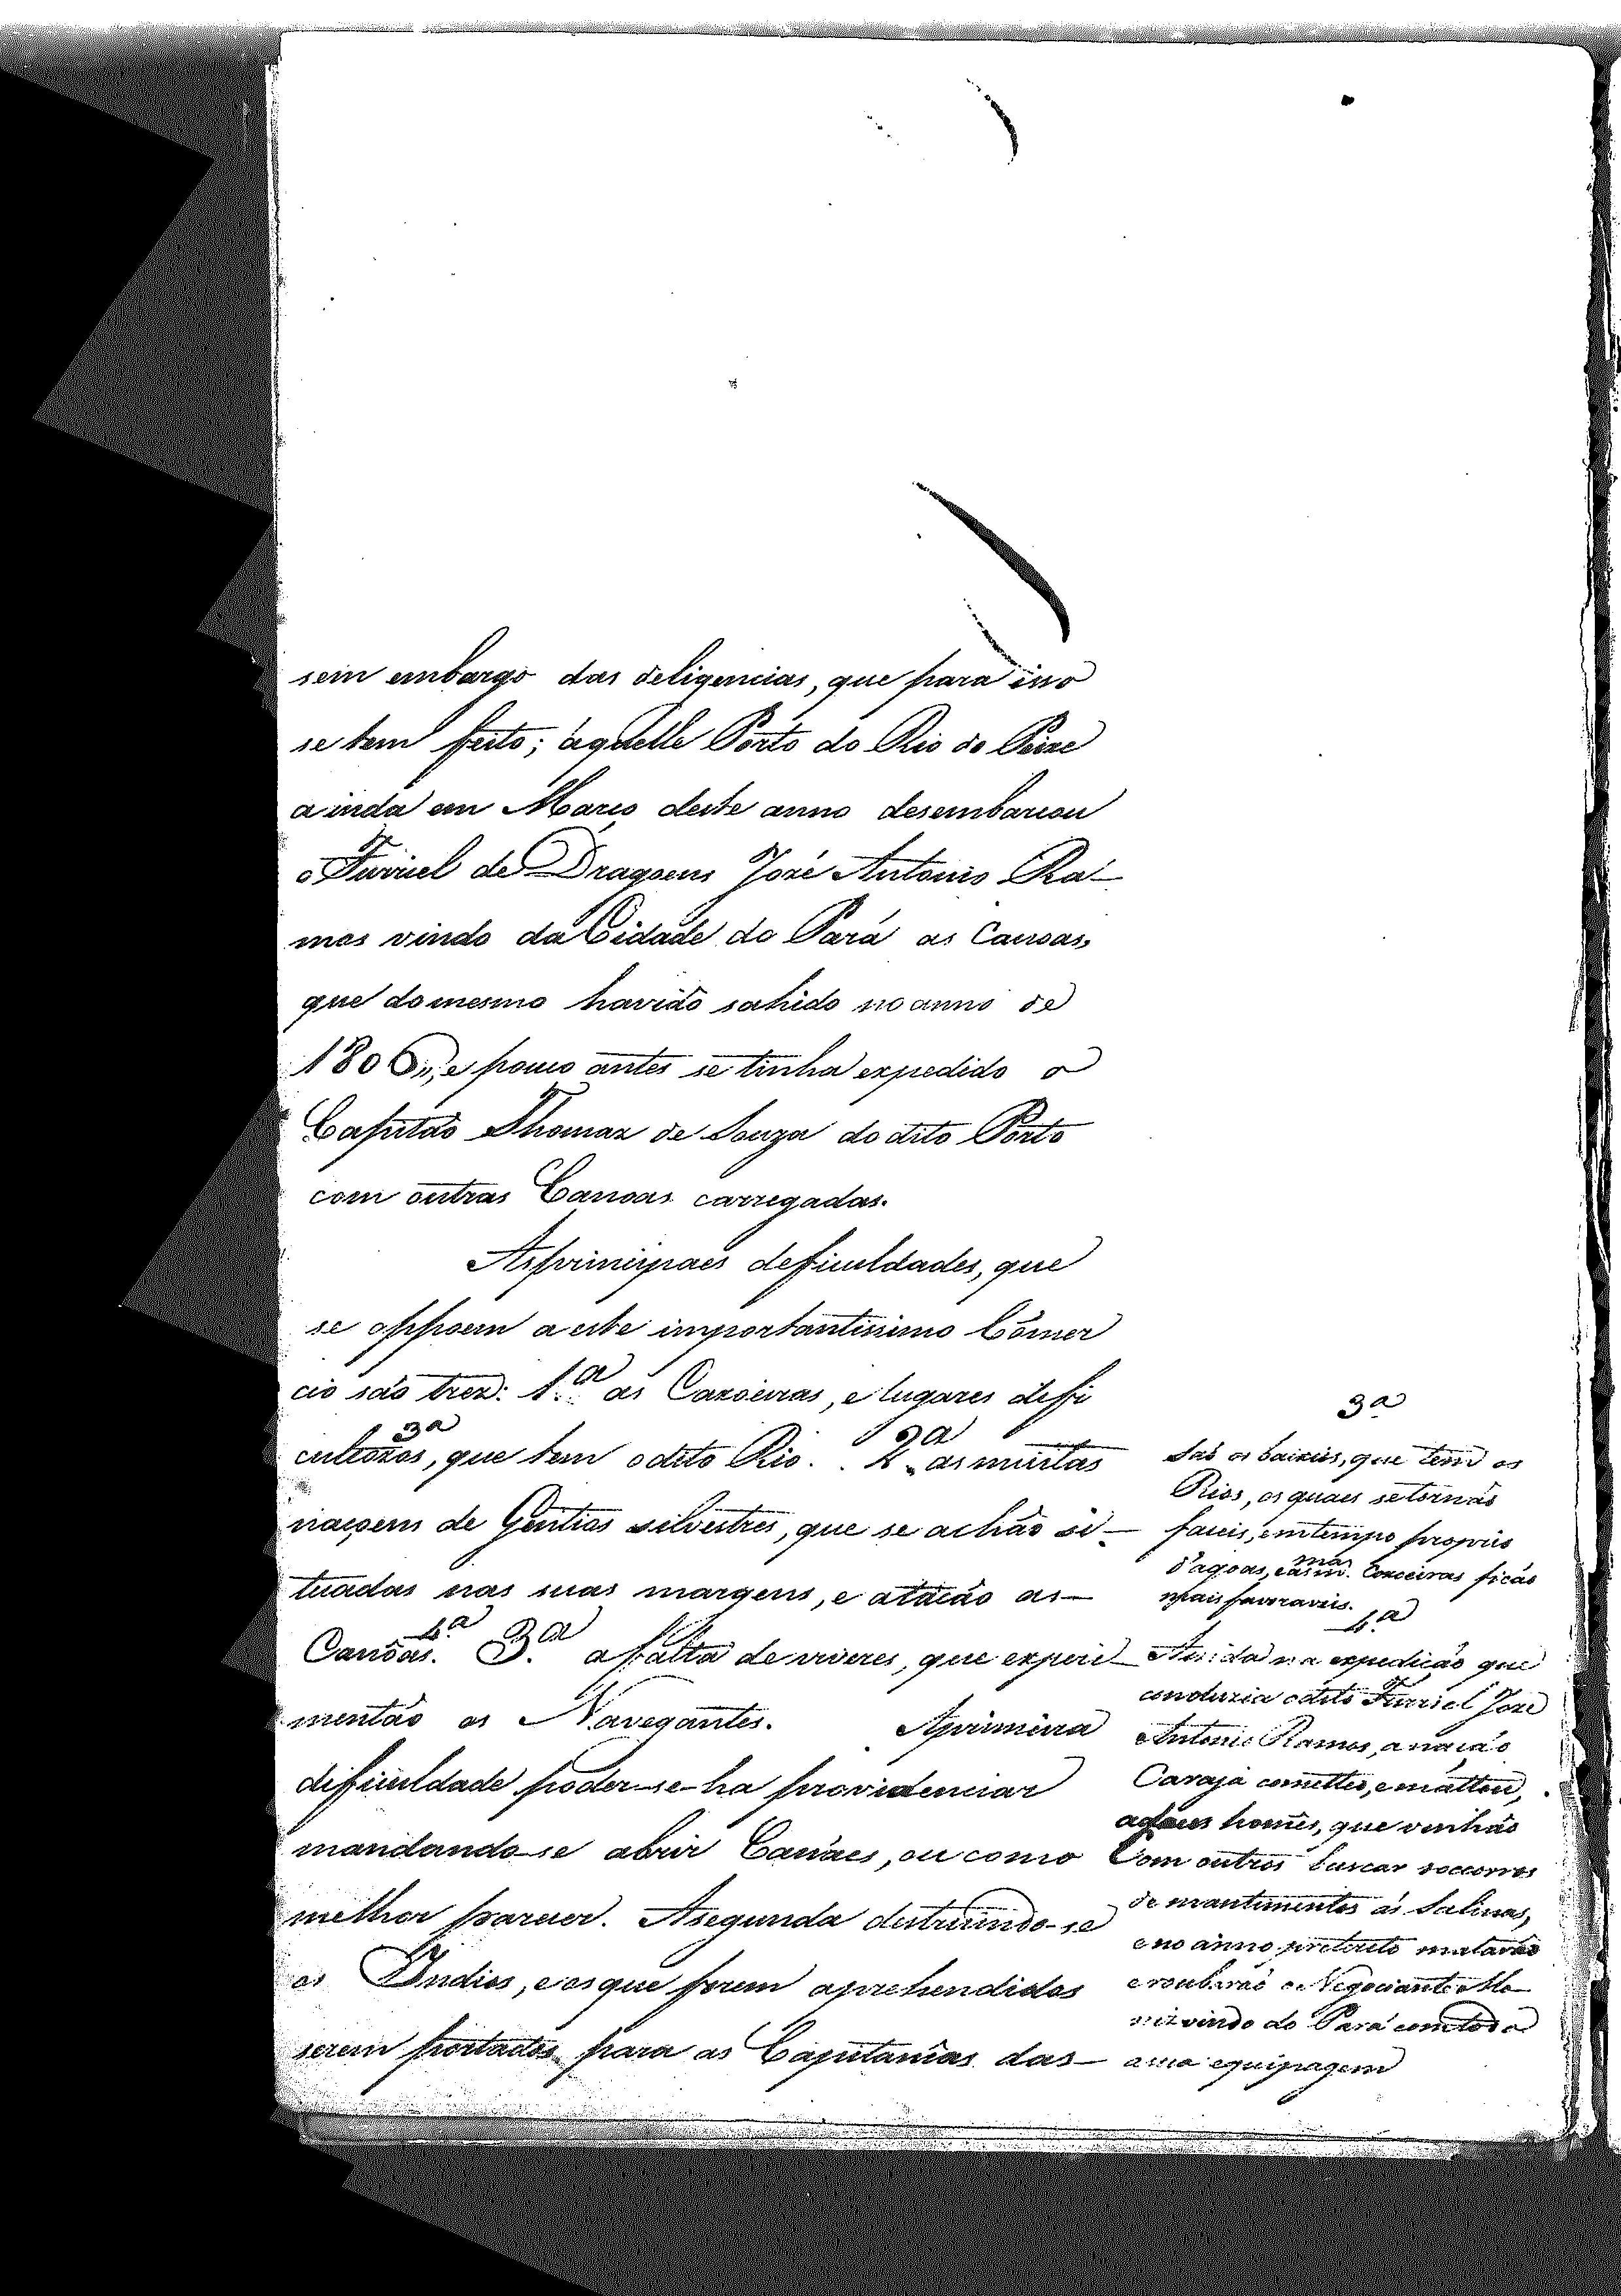 sem embargo das deligencias, que para isso
se tem feito; áquelle Porto do Rio do Peixe
ainda em Março deste anno desembarcou
o Furriel de Dragoens José Antonio Ra-
mos vindo da Cidade do Pará as Canoas,
que do mesmo havião sahido no anno de
1806, e pouco antes se tinha expedido o
Capitão Thomaz de Souza do dito Porto
com outras Canoas carregadas.
As principaes deficuldades, que
se oppoem a este importantissimo Cômer
cio são trez: 1.ª as Caxoeiras, e lugares defi
3ª
cultozos, que tem o dito Rio. 2ª as muitas
naçoens de Gentios silvestres, que se achão si-
tuadas nas suas margens, e atacão as
4ª
Canôas. 3.ª a falta de viveres, que experi-
mentão os Navegantes. A primeira
dificuldade poder-se-ha providenciar
mandando-se abrir Canaes, ou como
melhor parecer. A segunda destruindo-se
os Indios, e os que forem aprehendidos
serem portados para as Capitanias das
3ª
São os baixios, que tem os
Rios, os quaes se tornão
faceis, em tempo proprio
d'agoas, e as mas. Caxoeiras ficão
mais favoraveis.
4ª
Ainda na expedicão que
conduzia o dito Furriel Joze
Antonio Ramos, a nação
Carajá cometteo, e mattou,
homês, que vinhão
Com outros buscar soccorros
de mantimentos ás Salinas,
e no anno preterito matarão
e roubarão o Negociante Mo
niz vindo do Pará com toda
a sua equipagem